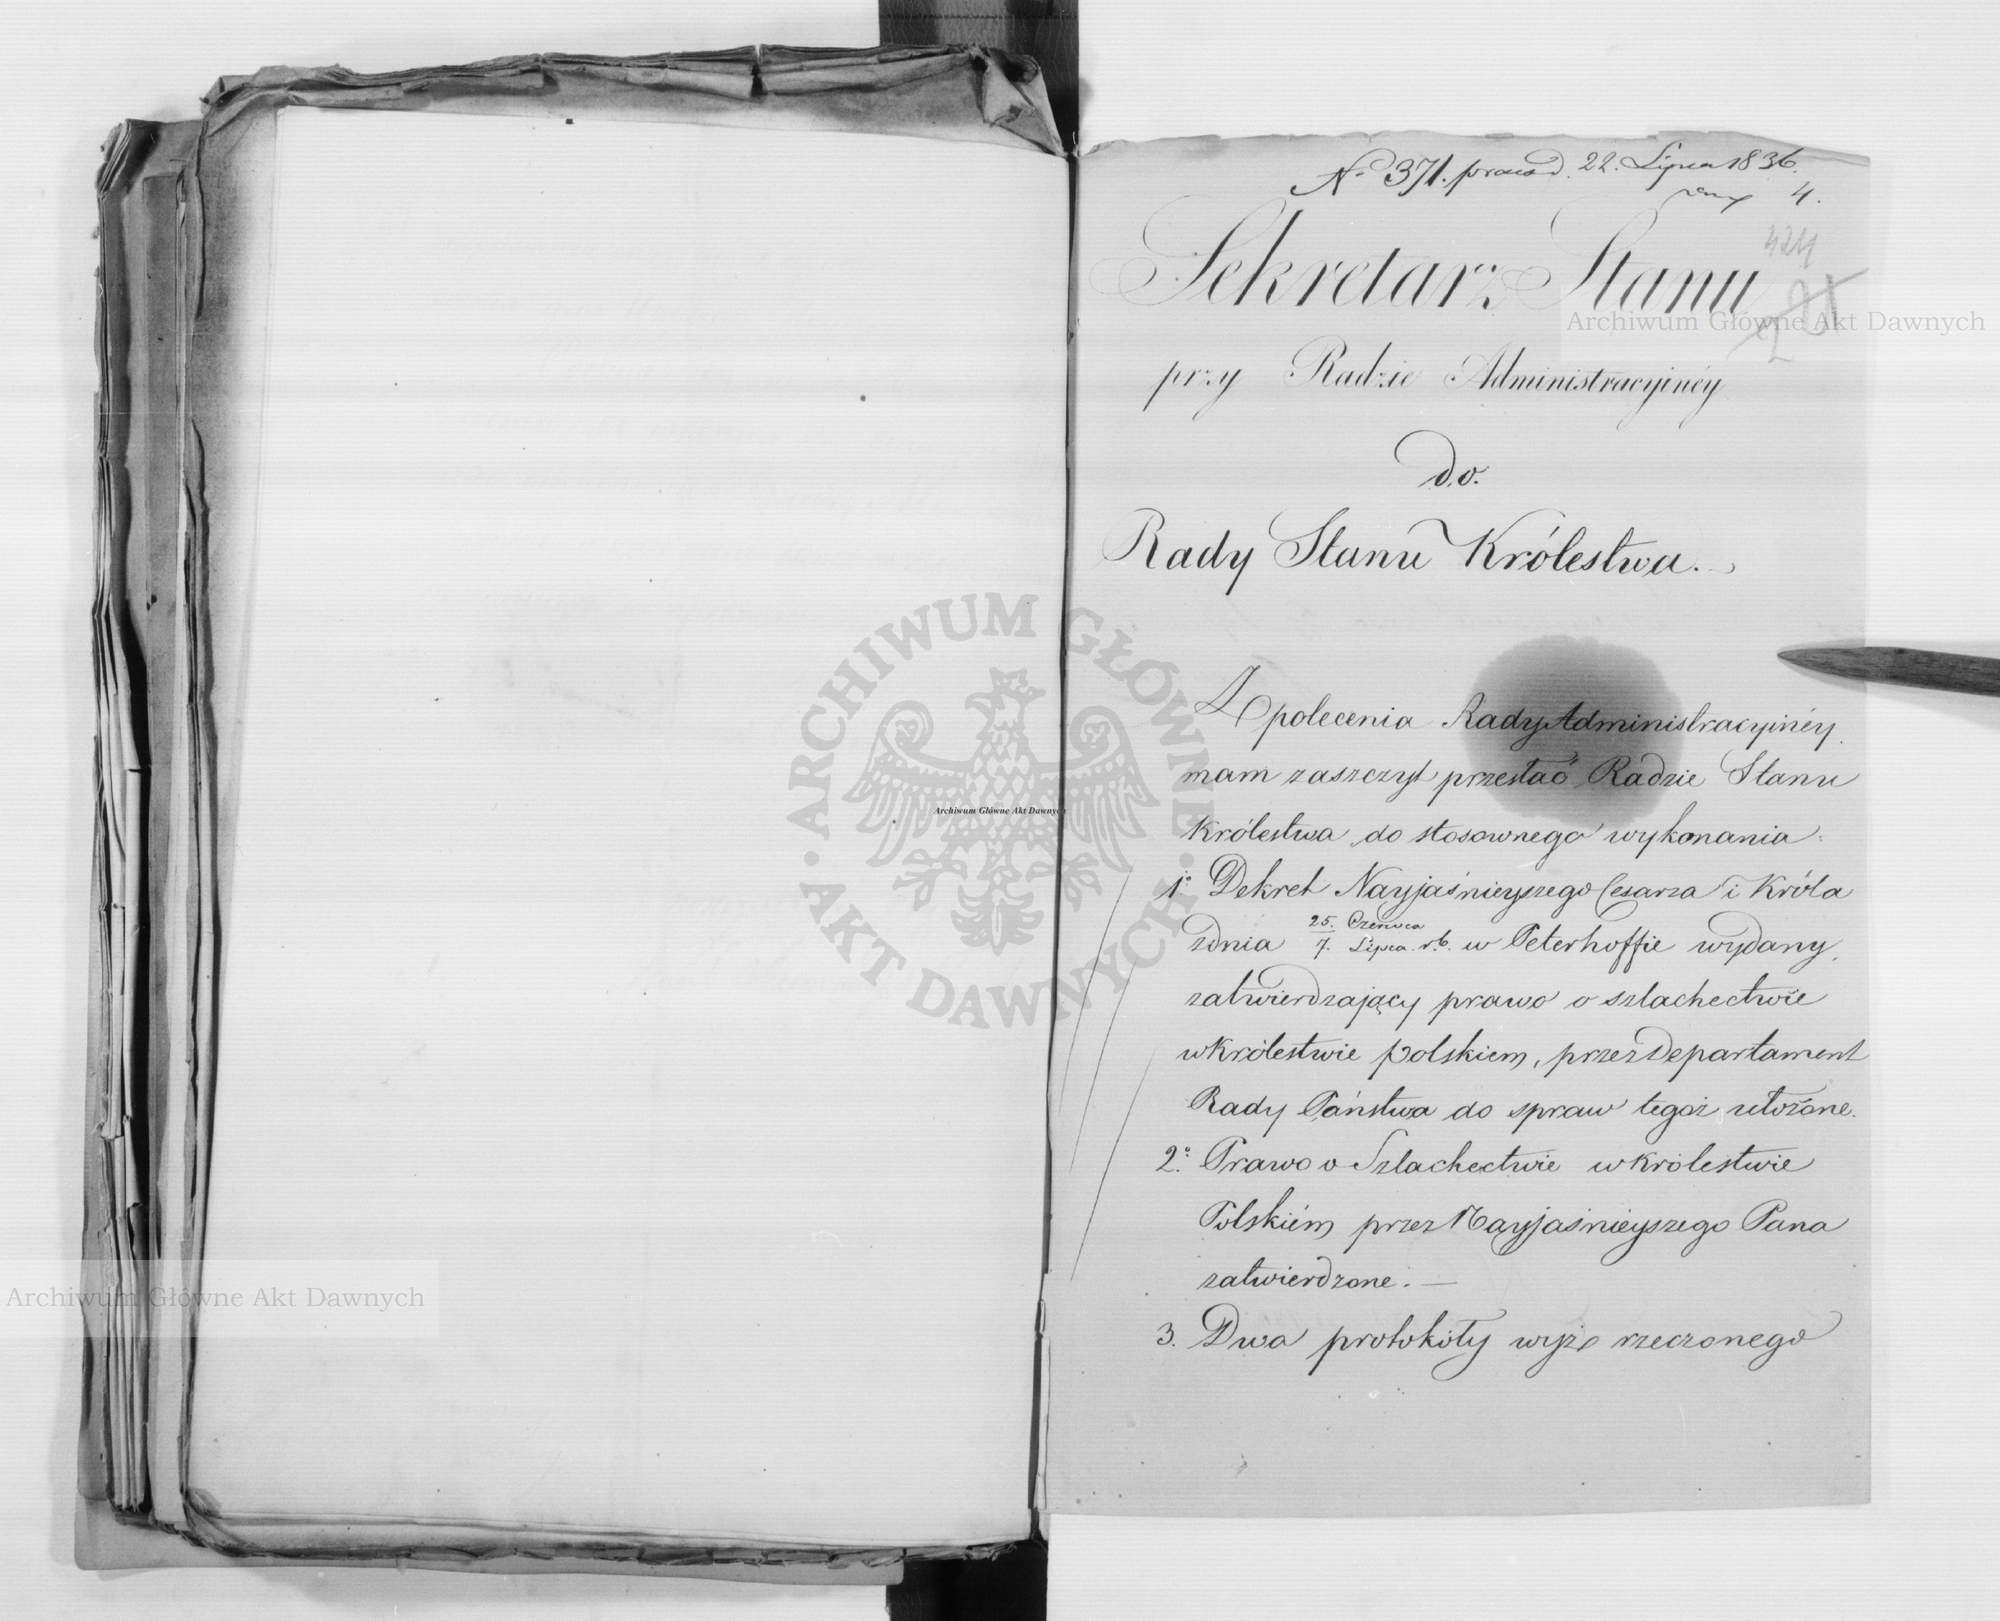 N° 371. 22. Lipca 1836.
4.
424
Sekretarz Stanu
Archiwum Główne Akt Dawnych
przy Radzie Administracyinéy
do.
Rady Stanu Królestwa.
Z polecenia Rady Administracyinéy
mam zaszczyt przesłać Radzie Stanu
Królestwa do stosownego wykonania:
1° Dekret Nayjaśnieyszego Cesarza i Króla
zdnia 25. Czerwca / 7. Lipca r.b. w Peterhoffie wydany,
zatwierdzający prawo o szlachectwie
w Królestwie polskiem, przez Departament
Rady Państwa do spraw tegoż ułożone.
2° Prawo o Szlachectwie w Królestwie
Polskiém przez Nayjaśnieyszego Pana
zatwierdzone. —
3. Dwa protokóły wyże rzeczonego
ARCHIWUM GŁÓWNE · AKT DAWNYCH ·
Archiwum Główne Akt Dawnych
Archiwum Główne Akt Dawnych